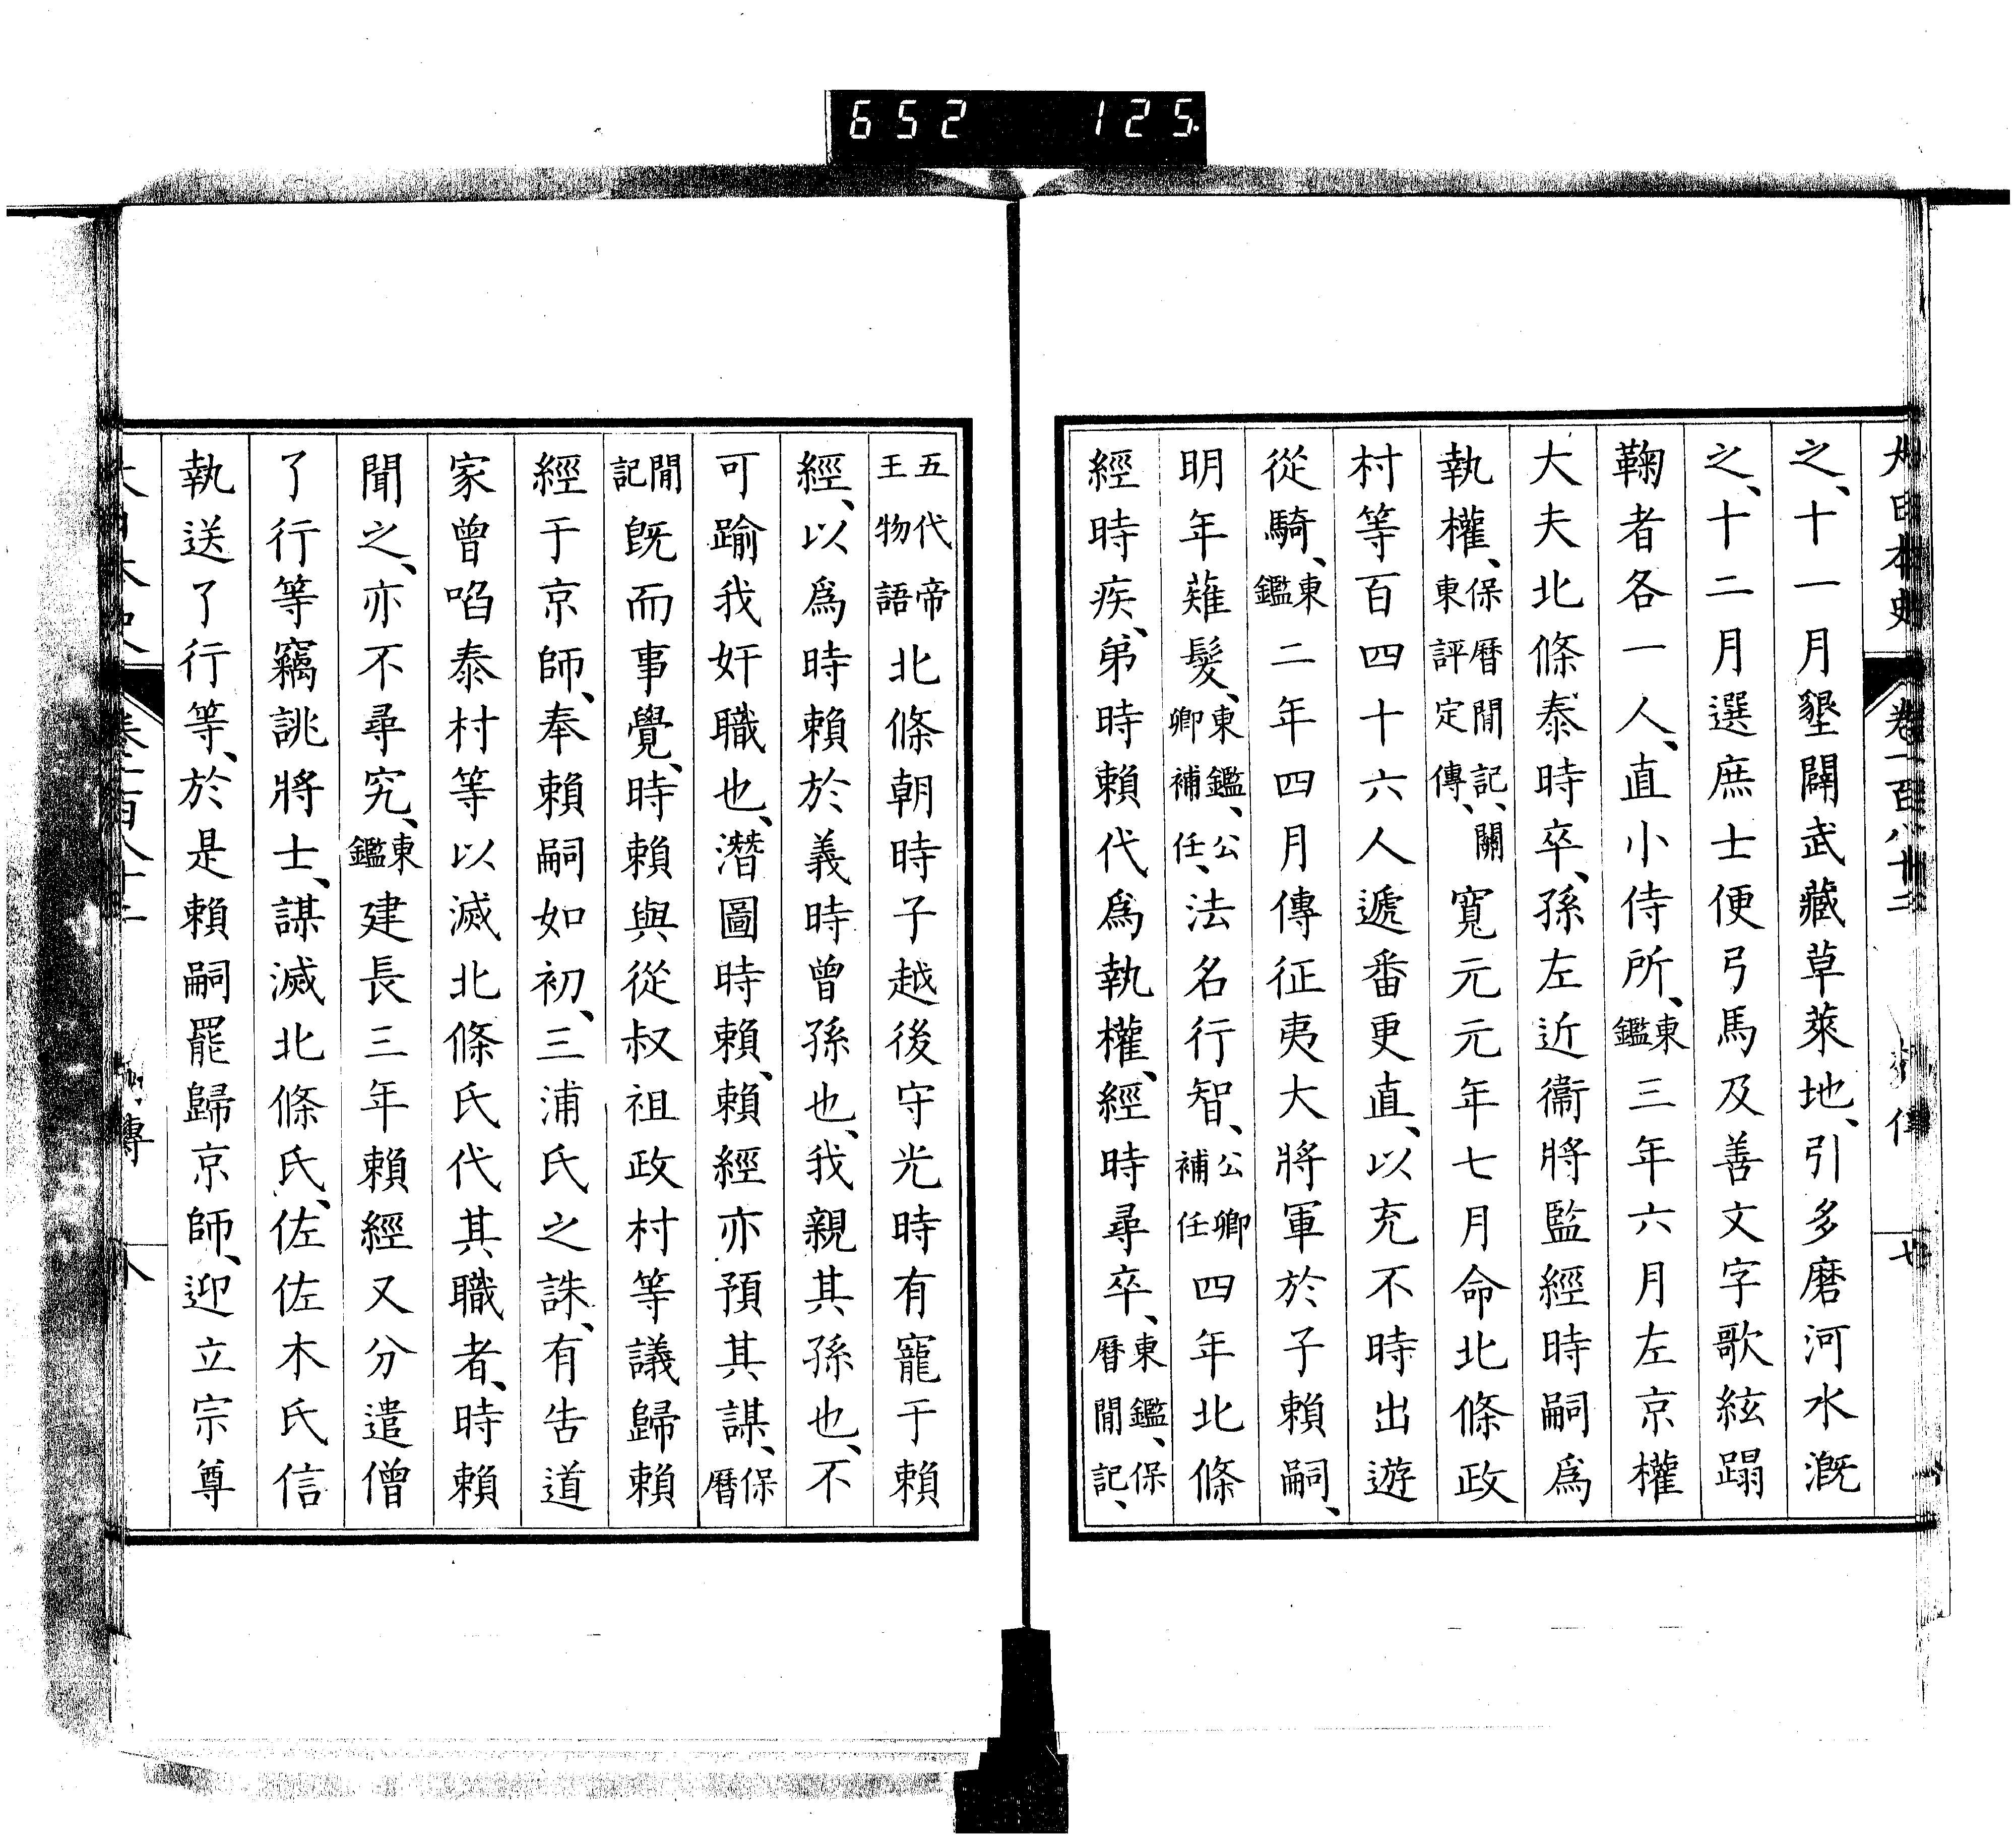 652 125
大日本史 卷一百八十二 七
之、十一月墾闢武藏草萊地、引多磨河水漑
之、十二月選庶士便弓馬及善文字歌絃蹋
鞠者各一人、直小侍所、東鑑三年六月左京權
大夫北條泰時卒、孫左近衞將監經時嗣爲
執權、保曆閒記、關東評定傳、寬元元年七月命北條政
村等百四十六人遞番更直、以充不時出遊
從騎、東鑑二年四月傳征夷大將軍於子賴嗣、
明年薙髮、東鑑、公卿補任、法名行智、公卿補任四年北條
經時疾、弟時賴代爲執權、經時尋卒、東鑑、保曆閒記、
五代帝王物語北條朝時子越後守光時有寵于賴
經、以爲時賴於義時曾孫也、我親其孫也、不
可踰我奸職也、潛圖時賴、賴經亦預其謀、保曆
閒記既而事覺、時賴與從叔祖政村等議歸賴
經于京師、奉賴嗣如初、三浦氏之誅、有告道
家曾啗泰村等以滅北條氏代其職者、時賴
聞之、亦不尋究、東鑑建長三年賴經又分遣僧
了行等竊誂將士、謀滅北條氏、佐佐木氏信
執送了行等、於是賴嗣罷歸京師、迎立宗尊
傳 八